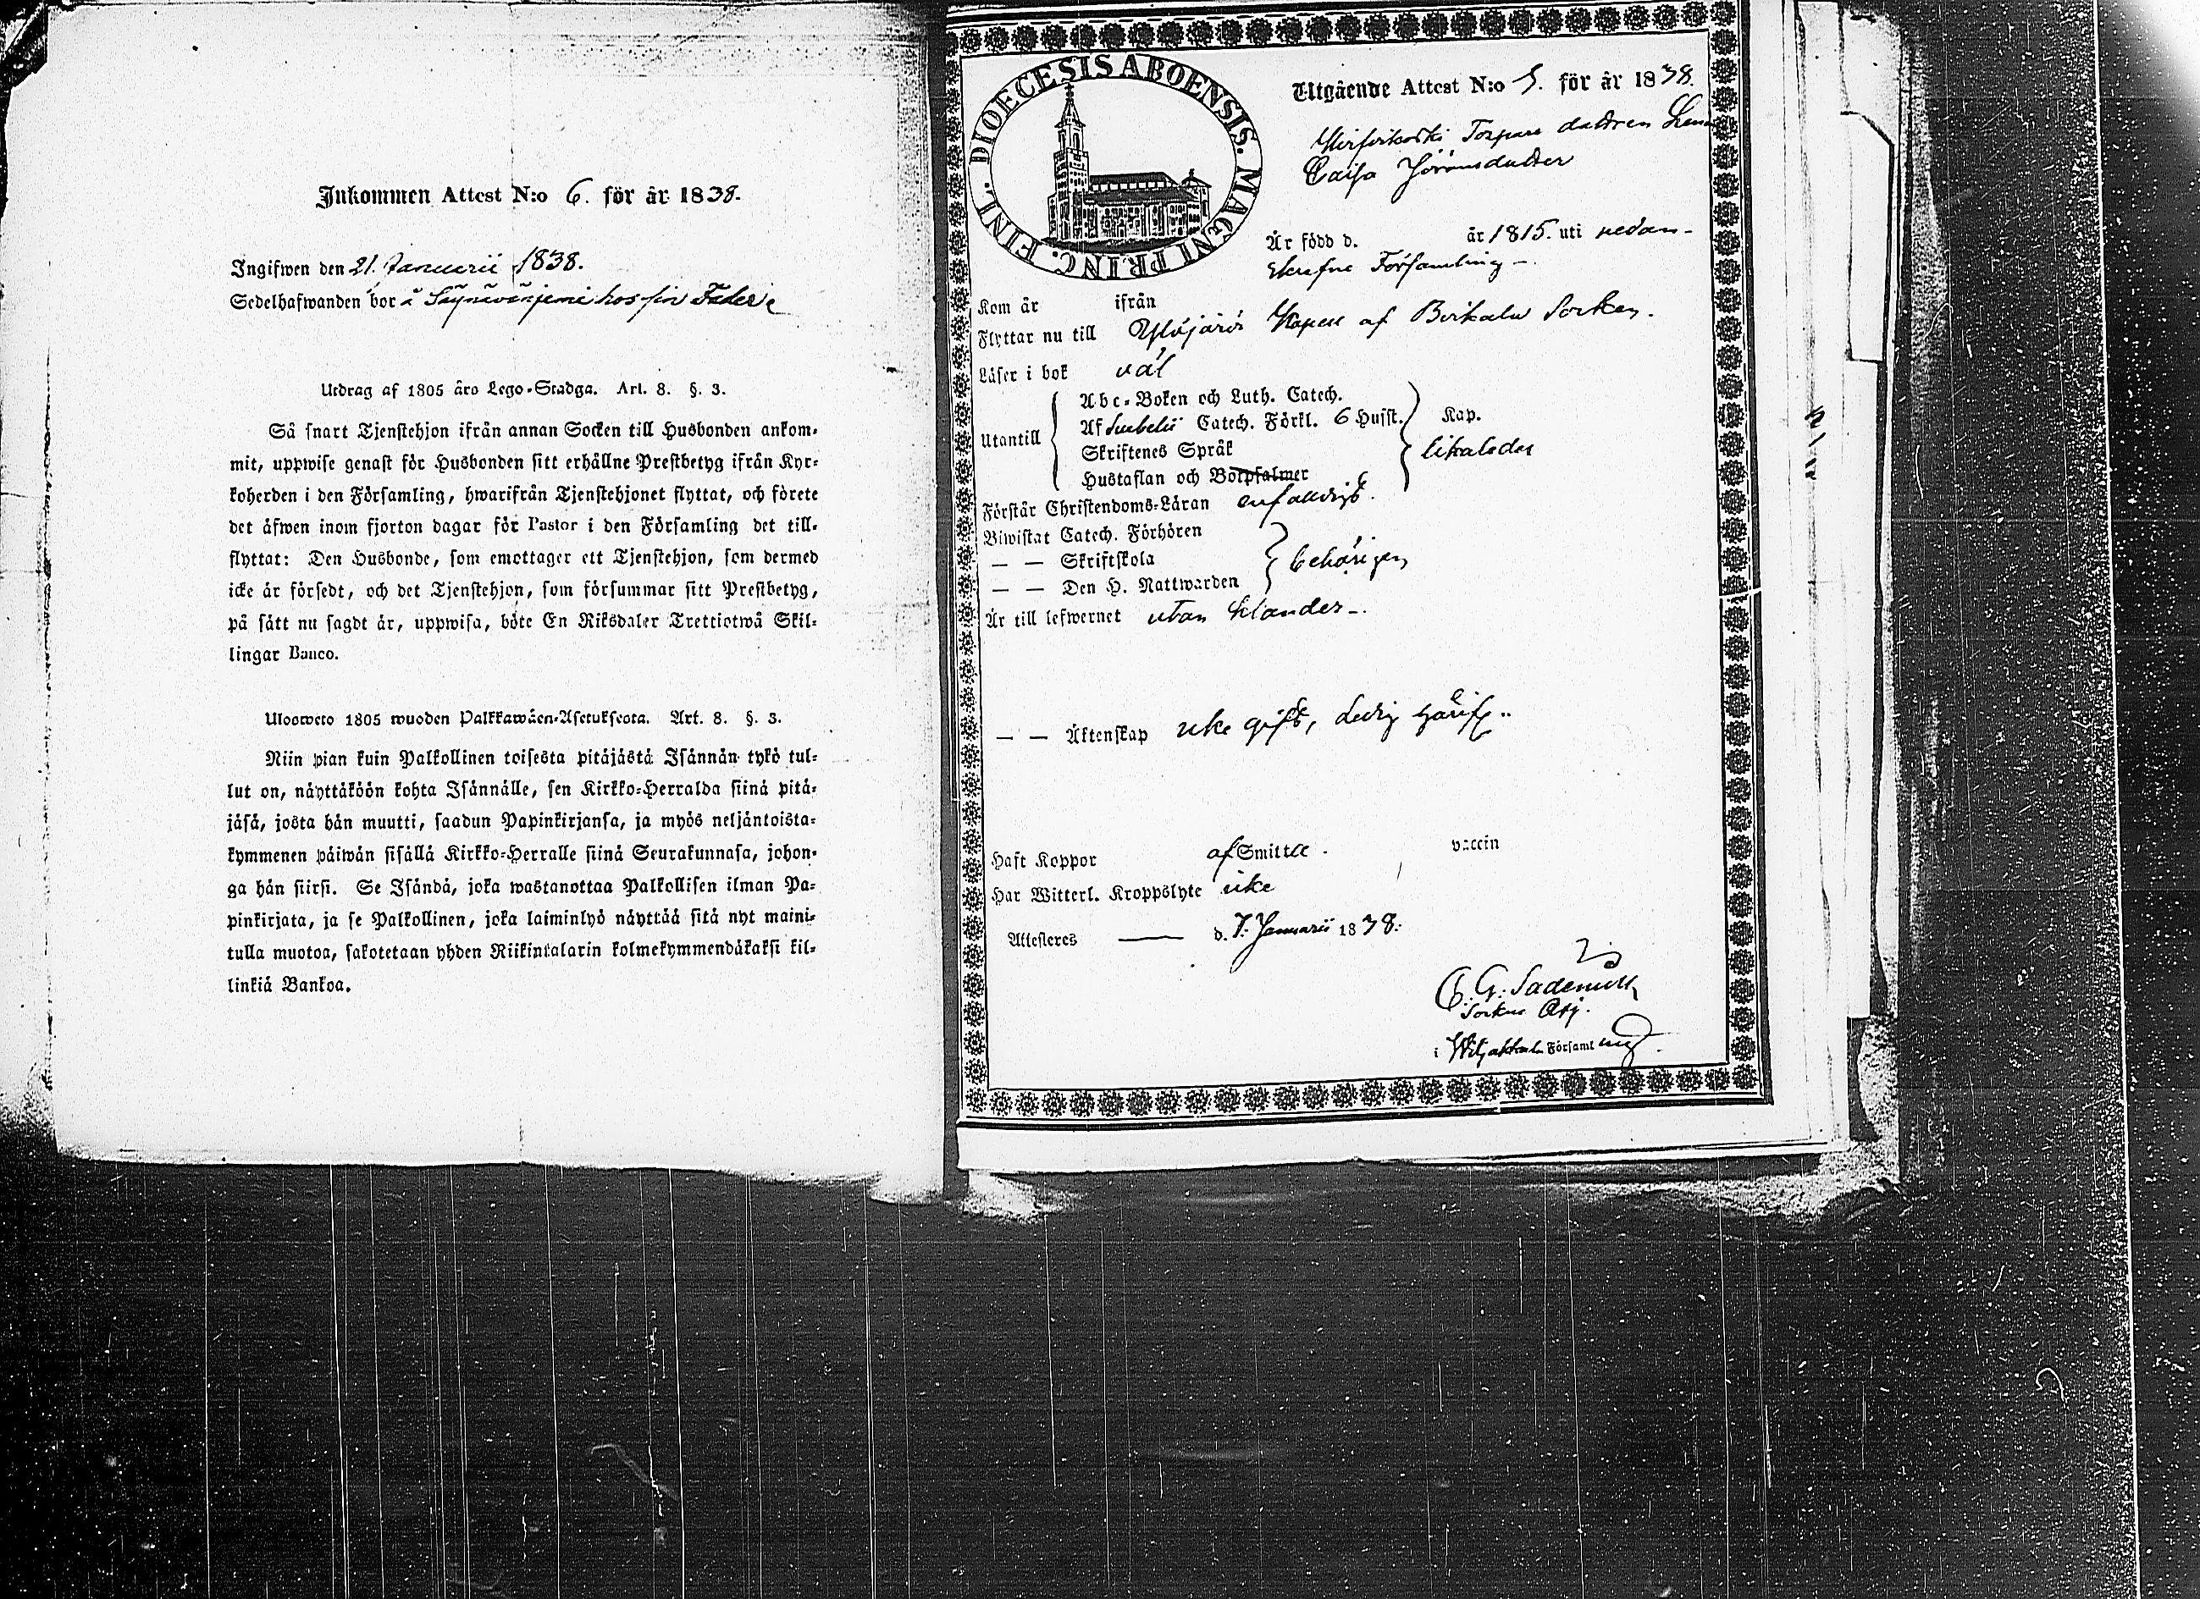 Inkommen Attest N:o 6. för år 1838.
Ingifwen den 21. Januarii 1838.
Sedelhafwanden bor å hos sin Fader
Utdrag af 1805 års Lego-Stadga. Art. 8. §. 3.
Så snart Tjenstehjon ifrån annan Socken till Husbonden ankom-
mit, uppwise genast för Husbonden sitt erhållne Prestbetyg ifrån Kyr-
koherden i den Församling, hwarifrån Tjenstehjonet flyttat, och förete
det äfwen inom fjorton dagar för Pastor i den Församling det till-
flyttat: Den Husbonde, som emottager ett Tjenstehjon, som dermed
icke är försedt, och det Tjenstehjon, som försummar sitt Prestbetyg,
på sätt nu sagdt är, uppwisa, böte En Riksdaler Trettiotwå Skil-
lingar Banco.
Ulosweto 1805 wuoden Palkkawäen-Asetuksesta. Art. 8. §. 3.
Niin pian kuin Palkollinen toisesta pitäjästä Isännän tykö tul-
lut on, näyttäköön kohta Isännälle, sen Kirkko-Herralda siinä pitä-
jäsä, josta hän muutti, saadun Papinkirjansa, ja myös neljäntoista-
kymmenen päiwän sisällä Kirkko-Herralle siinä Seurakunnasa, johon-
ga hän siirsi. Se Isändä, joka wastanottaa Palkollisen ilman Pa-
pinkirjata, ja se Palkollinen, joka laiminlyö näyttää sitä nyt maini-
tulla muotoa, sakotetaan yhden Riikintalarin kolmekymmendäkaksi kil-
linkiä Bankoa.
DIOECESIS ABOENSIS. MAGNI PRINC. FINL.
Utgående Attest N:o 5. för år 1838.
Torpare dottren
Caisa
Är född d. år 1815. uti nedan-
skrefne Församling
Kom år ifrån
Flyttar nu till Ylöjärvi Kapell af Birkala Socken.
Läser i bok väl
Utantill
Abc-Boken och Luth. Catech.
Af Svebelii Catech. Förkl. 6 Husst. Kap.
Skriftenes Språk likaledes
Hustaflan och Botpsalmer
Förstår Christendoms-Läran enfaldigt.
Biwistat Catech. Förhören
— — Skriftskola behörigen
— — Den H. Nattwarden
Är till lefwernet utan klander
— — Äktenskap icke gift, ledig härifr.
Haft Koppor af Smitta. vaccin
Har Witterl. Kroppslyte icke
Attesteres d. 7. Januarii 1838.
C. G. Sadenius
Socken Adj.
i Wiljakkala Församling.